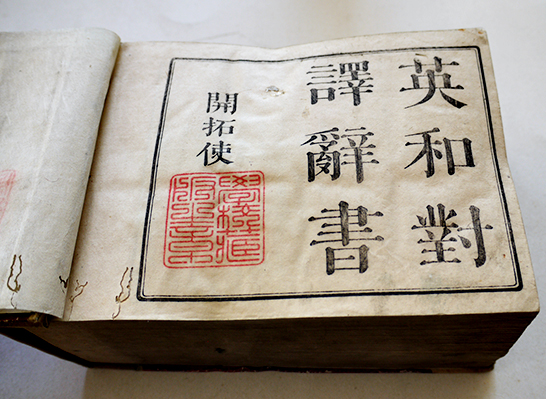 英和對
譯辭書
開拓使